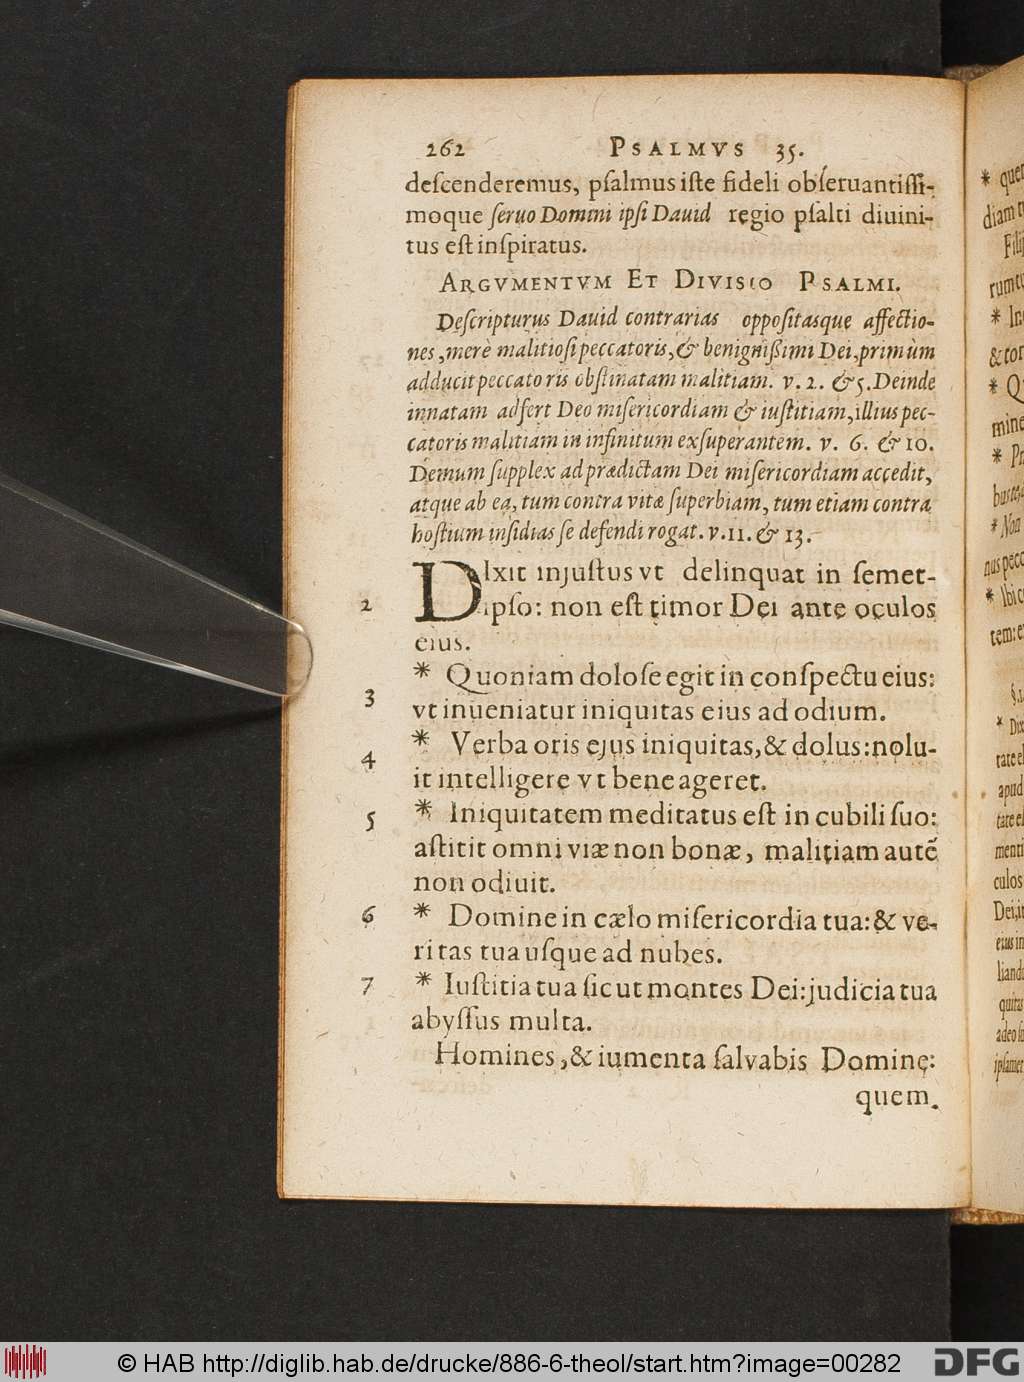 262 PSALMVS 35.
deſcenderemus, pſalmus iſte fideli obſeruantiſſi-
moque ſeruo Domini ipſi Dauid regio pſalti diuini-
tus eſt inſpiratus.
ARGVMENTVM ET DIVISIO PSALMI.
Deſcripturus Dauid contrarias oppoſitasque affectio-
nes, merè malitioſi peccatoris, & benignißimi Dei, primùm
adducit peccatoris obſtinatam malitiam. v. 2. & 5. Deinde
innatam adfert Deo miſericordiam & iuſtitiam, illius pec-
catoris malitiam in infinitum exſuperantem. v. 6. & 10.
Demum ſupplex ad prædictam Dei miſericordiam accedit,
atque ab ea, tum contra vitæ ſuperbiam, tum etiam contra
hoſtium inſidias ſe defendi rogat. v. 11. & 13.
DIxit injuſtus vt delinquat in ſemet-
2 ipſo: non eſt timor Dei ante oculos
eius.
* Quoniam doloſe egit in conſpectu eius:
3 vt inueniatur iniquitas eius ad odium.
* Verba oris ejus iniquitas, & dolus: nolu-
4 it intelligere vt bene ageret.
5 * Iniquitatem meditatus eſt in cubili ſuo:
aſtitit omni viæ non bonæ, malitiam autē
non odiuit.
6 * Domine in cælo miſericordia tua: & ve-
ritas tua uſque ad nubes.
7 * Iuſtitia tua ſicut montes Dei: judicia tua
abyſſus multa.
Homines, & iumenta ſalvabis Domine:
quem.
* quem
diam t
Fili
rumt
* In
& tor
* Q
mine
* Pr
bus
* Non
nus pecc
* Ibi c
tem: e
* Dix
tate e
apud
tate e
menti
culos
Dei, it
eius in
liand
quitas
adeo
ipſamet
© HAB http://diglib.hab.de/drucke/886-6-theol/start.htm?image=00282
DFG